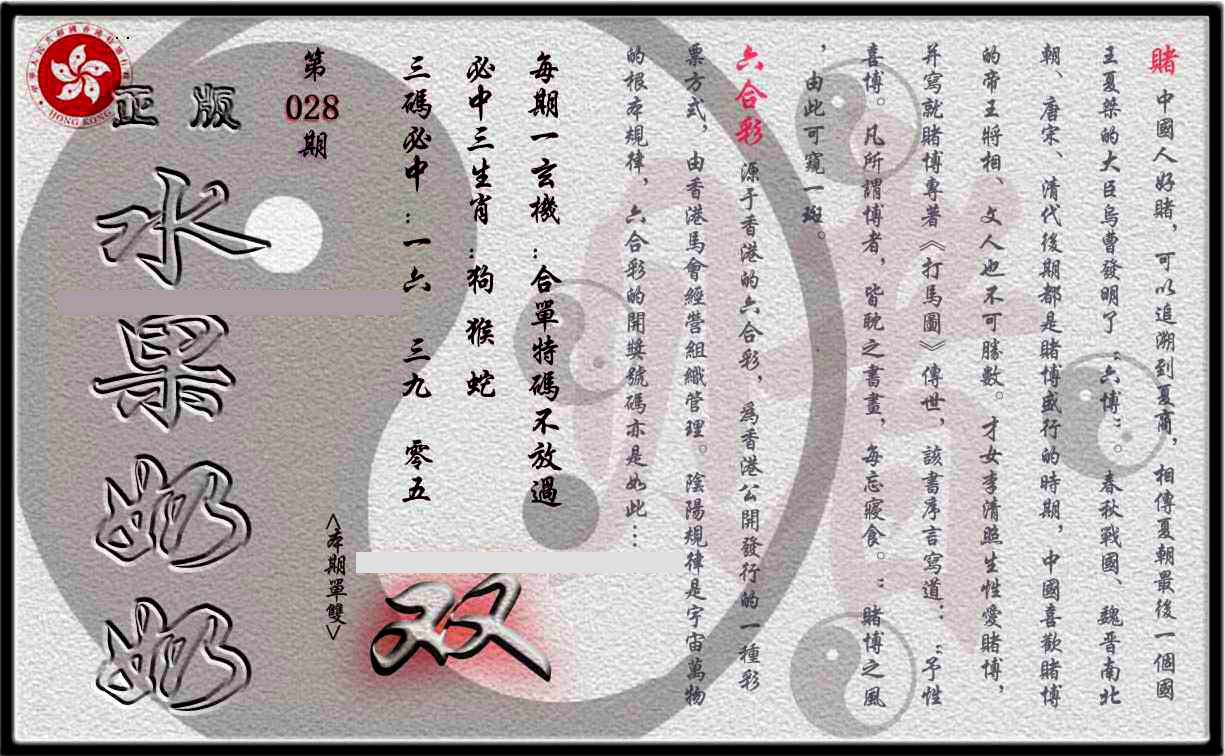 賭 中國人好賭，可以追溯到夏商，相傳夏朝最後一個國
王夏桀的大臣烏曹發明了“六博”。春秋戰國、魏晋南北
朝、唐宋、清代後期都是賭博盛行的時期，中國喜歡賭博
的帝王將相、文人也不可勝數。才女李清照生性愛賭博，
并寫就賭博專著《打馬圖》傳世，該書序言寫道：“予性
喜博。凡所謂博者，皆耽之書畫，每忘寢食。”賭博之風
，由此可窺一斑。
六合彩 源于香港的六合彩，爲香港公開發行的一種彩
票方式，由香港馬會經營組織管理。陰陽規律是宇宙萬物
的根本規律，六合彩的開獎號碼亦是如此…
每期一玄機：合單特碼不放過
必中三生肖：狗 猴 蛇
三碼必中：一六 三九 零五
第
028
期
<本期單雙>
双
正版
水果奶奶
HONG KONG